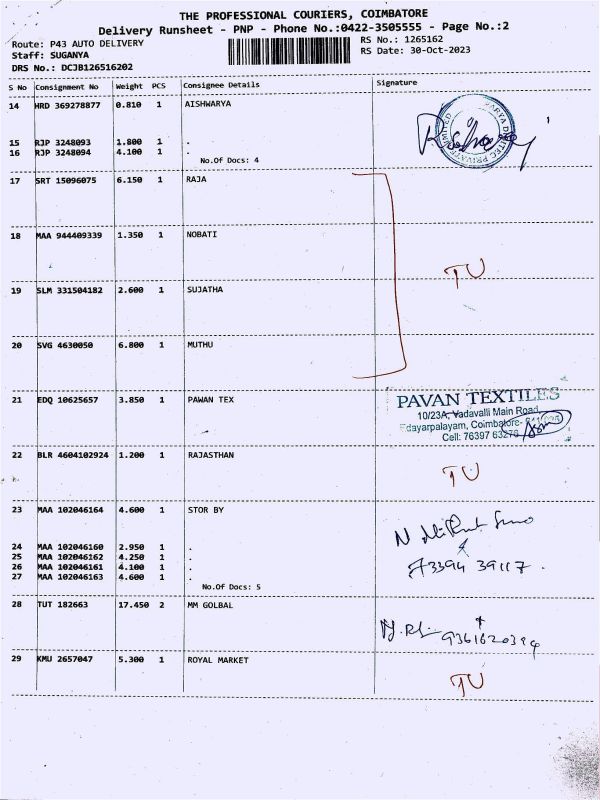 THE PROFESSIONAL COURIERS, COIMBATORE
Delivery Runsheet - PNP - Phone No.:0422-3505555 - Page No.:2
Route: P43 AUTO DELIVERY
RS No.: 1265162
Staff: SUGANYA
RS Date: 30-Oct-2023
DRS No.: DCJB126516202
S No Consignment No Weight PCS Consignee Details Signature
14 HRD 369278877 0.810 1 AISHWARYA
15 RJP 3248093 1.800 1 .
16 RJP 3248094 4.100 1 .
No.Of Docs: 4
17 SRT 15096075 6.150 1 RAJA
18 MAA 944409339 1.350 1 NOBATI
TU
19 SLM 331504182 2.600 1 SUJATHA
20 SVG 4630050 6.800 1 MUTHU
21 EDQ 10625657 3.850 1 PAWAN TEX
PAVAN TEXTILES
10/23A, Vadavalli Main Road,
Edayarpalayam, Coimbatore-
Cell: 76397
22 BLR 4604102924 1.200 1 RAJASTHAN
TU
23 MAA 102046164 4.600 1 STOR BY
24 MAA 102046160 2.950 1 .
25 MAA 102046162 4.250 1 .
26 MAA 102046161 4.100 1 .
27 MAA 102046163 4.600 1 .
73394 39117.
No.Of Docs: 5
28 TUT 182663 17.450 2 MM GOLBAL
29 KMU 2657047 5.300 1 ROYAL MARKET
TU